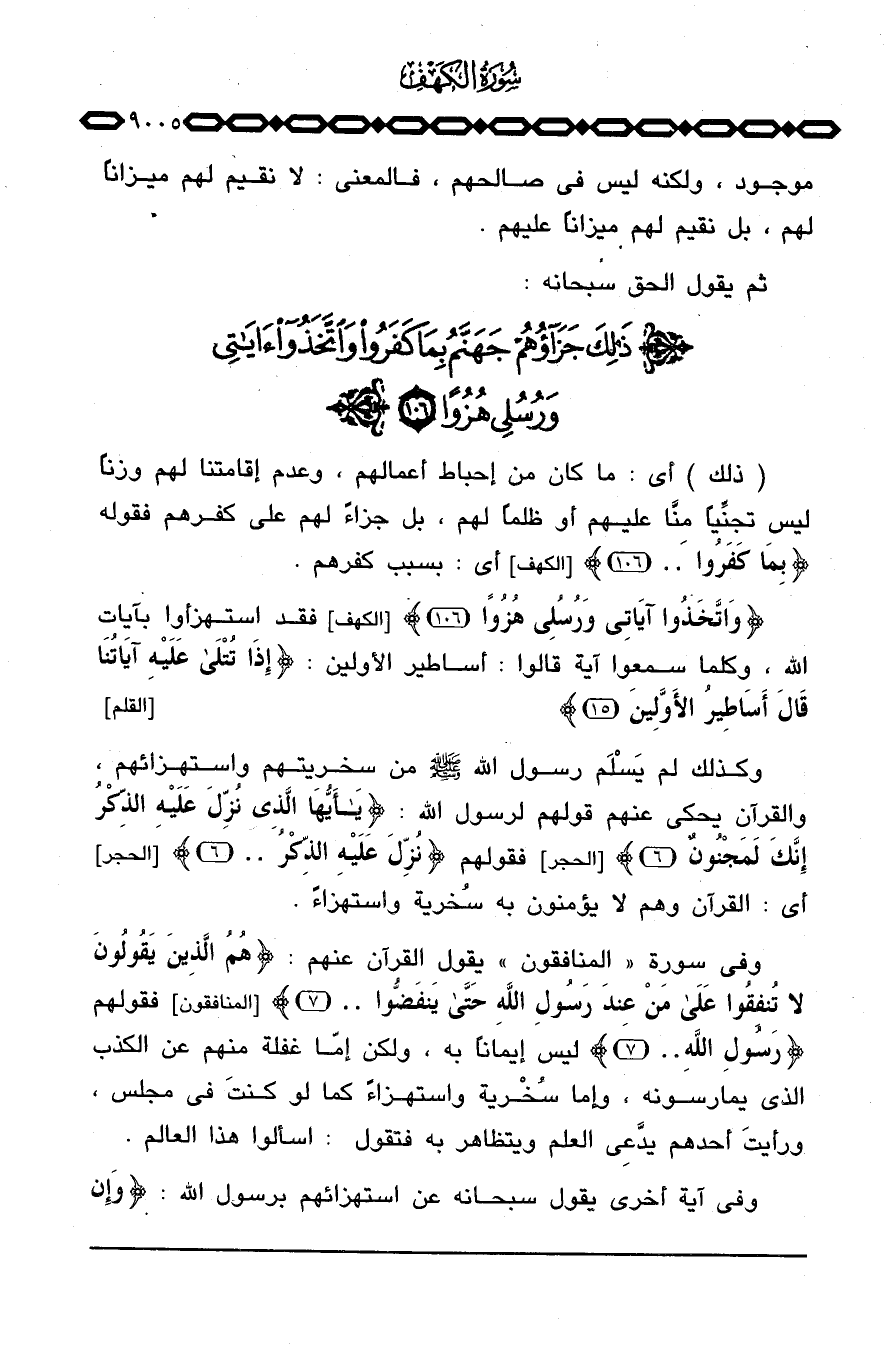 سُورَةُ الكَهْفِ
٩٠٠٥
موجـود ، ولكنه ليس فى صـالحهم ، فـالمعنى : لا نقـيم لهم ميـزاناً
لهم ، بل نقيم لهم ميزاناً عليهم .
ثم يقول الحق سبحانه :
ذَٰلِكَ جَزَآؤُهُمْ جَهَنَّمُ بِمَا كَفَرُواْ وَٱتَّخَذُوٓاْ ءَايَٰتِى
وَرُسُلِى هُزُوًا ١٠٦
( ذلك ) أى : ما كان من إحباط أعمالهم ، وعدم إقامتنا لهم وزناً
ليس تجنِّياً منَّا عليـهم أو ظلماً لهم ، بل جزاءً لهم على كفـرهم فقوله
﴿ بِمَا كَفَرُوا .. (١٠٦) ﴾ [الكهف] أى : بسبب كفرهم .
﴿ وَاتَّخَذُوا آيَاتِى وَرُسُلِى هُزُوًا (١٠٦) ﴾ [الكهف] فقـد استـهزأوا بـآيات
الله ، وكلما سـمعوا آية قالوا : أسـاطير الأولين : ﴿ إِذَا تُتْلَىٰ عَلَيْهِ آيَاتُنَا
قَالَ أَسَاطِيرُ الأَوَّلِينَ (١٥) ﴾ [القلم]
وكـذلك لم يَسْلَم رسـول الله ﷺ من سخـريتـهم واستـهـزائهم ،
والقرآن يحكى عنهم قولهم لرسول الله : ﴿ يَـٰأَيُّهَا الَّذِى نُزِّلَ عَلَيْهِ الذِّكْرُ
إِنَّكَ لَمَجْنُونٌ (٦) ﴾ [الحجر] فقولهم ﴿ نُزِّلَ عَلَيْهِ الذِّكْرُ .. (٦) ﴾ [الحجر]
أى : القرآن وهم لا يؤمنون به سُخرية واستهزاءً .
وفى سورة « المنافقون » يقول القرآن عنهم : ﴿ هُمُ الَّذِينَ يَقُولُونَ
لا تُنفِقُوا عَلَىٰ مَنْ عِندَ رَسُولِ اللَّهِ حَتَّىٰ يَنفَضُّوا .. (٧) ﴾ [المنافقون] فقولهم
﴿ رَسُولِ اللَّهِ.. (٧) ﴾ ليس إيمـاناً به ، ولكن إمّـا غفلة منهم عن الكذب
الذى يمارسـونه ، وإما سُخْرية واستهـزاءً كما لو كـنتَ فى مجلس ،
ورأيتَ أحدهم يدَّعى العلم ويتظاهر به فتقول : اسألوا هذا العالم .
وفى آية أخرى يقول سبحـانه عن استهزائهم برسول الله : ﴿ وَإِن